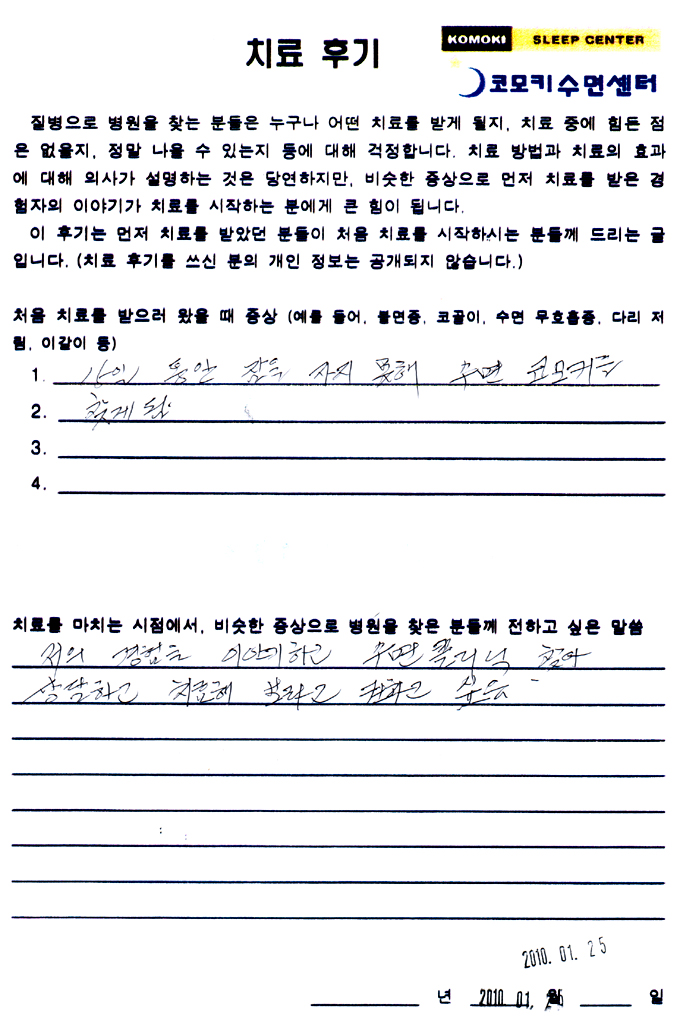 치료 후기
KOMOKI SLEEP CENTER
코모키수면센터
질병으로 병원을 찾는 분들은 누구나 어떤 치료를 받게 될지, 치료 중에 힘든 점
은 없을지, 정말 나을 수 있는지 등에 대해 걱정합니다. 치료 방법과 치료의 효과
에 대해 의사가 설명하는 것은 당연하지만, 비슷한 증상으로 먼저 치료를 받은 경
험자의 이야기가 치료를 시작하는 분에게 큰 힘이 됩니다.
이 후기는 먼저 치료를 받았던 분들이 처음 치료를 시작하시는 분들께 드리는 글
입니다. (치료 후기를 쓰신 분의 개인 정보는 공개되지 않습니다.)
처음 치료를 받으러 왔을 때 증상 (예를 들어, 불면증, 코골이, 수면 무호흡증, 다리 저
림, 이갈이 등)
1. 동안 잠을 자지 못해 수면 코모키를
2. 찾게 됨
3.
4.
치료를 마치는 시점에서, 비슷한 증상으로 병원을 찾은 분들께 전하고 싶은 말씀
저의 경험을 이야기하고 수면클리닉 찾아
상담하고 치료해 보라고 권하고 싶음
2010. 01. 25
년 2010. 01. 25 월 일